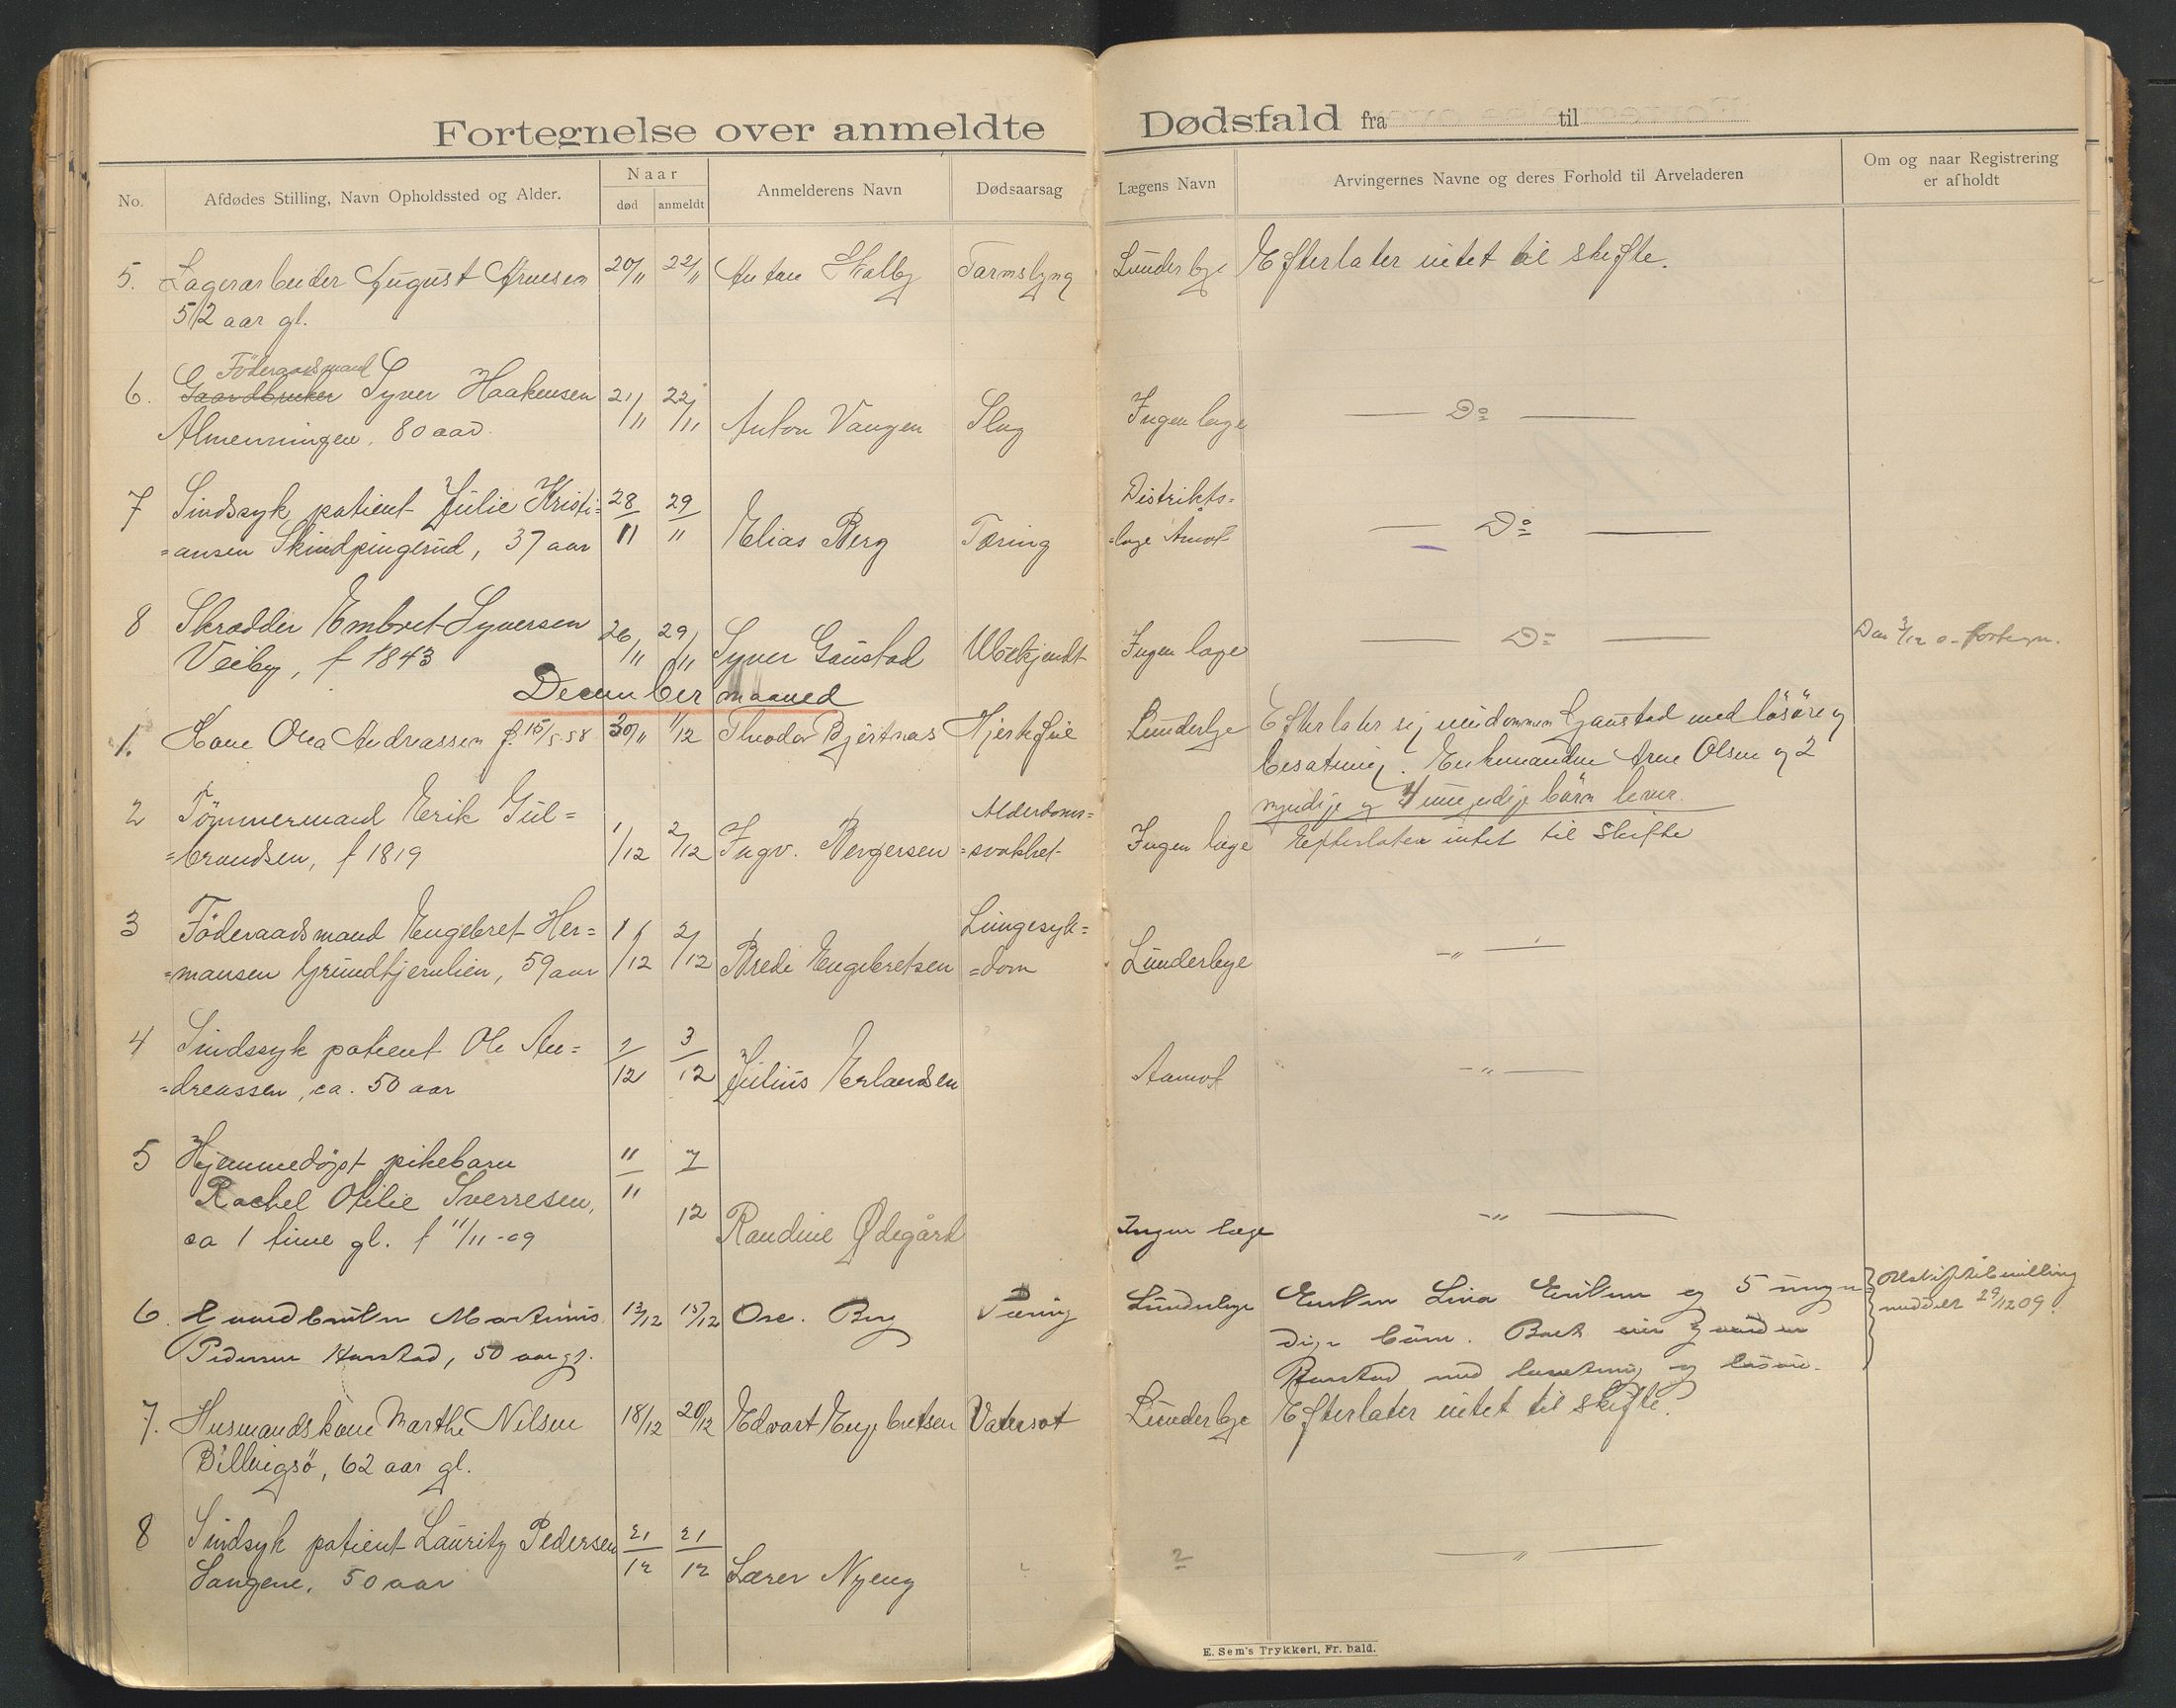 Fortegnelse over anmeldte Dødsfald fra til
No.
Afdødes Stilling, Navn Opholdssted og Alder.
Naar
død
anmeldt
Anmelderens Navn
Dødsaarsag
Lægens Navn
Arvingernes Navne og deres Forhold til Arveladeren
Om og naar Registrering
er afholdt
5. Lagerarbeider August 20/11 22/11 Anton Tarmslyng Lunderbye Efterlater intet til skifte.
52 aar gl.
Føderaadsmand
6. Gaardbruker Syver Haakensen 21/11 22/11 Anton Vangen Slag Ingen læge — Do —
Almenningen, 80 aar.
7 Sindssyk patient Julie Kristi= 28/11 29/11 Elias Berg Tæring Distrikts=
=ansen Skindpungerud, 37 aar =læge Aamot — Do —
8 Skrædder Embret Syversen 26/11 29/11 Syver Gaustad Ubekjendt Ingen læge — Do —
Veiby, f 1843
December maaned
1. Kone Olea Andreassen f. 15/5 58 30/11 1/12 Theodor Bjertnæs Hjertefeil Lunderbye Efterlater sig eiendommen Gaustad med løsøre og
besætning. Enkemanden Arne Olsen og 2
myndige og 4 umyndige børn lever.
2 Tømmermand Erik Gul= 1/12 2/12 Ingv. Bergersen Alderdoms=
=brandsen, f 1819 =svakhet Ingen læge Efterlater intet til Skifte
3 Føderaadsmand Engebret Her= 1/12 2/12 Brede Engebretsen Lungesyk=
=mansen Grundtjernlien, 59 aar =dom Lunderbye — " —
4 Sindssyk patient Ole An= 2/12 3/12 Julius Erlandsen Aamot — " —
=dreassen, ca. 50 aar
5 Hjemmedøpt pikebarn 11/11 7/12 Randine Ødegård Ingen læge — " —
Rachel Otilie Sverresen,
ca 1 time gl. f 11/11-09
6. Gaardbruker Martinus 13/12 15/12 Ose. Berg Tæring Lunderbye Enken Lina Eriksen og 5 umyn=
Pedersen Harstad, 50 aar gl. dige børn.
meddelt 29/12 09.
7. Husmandskone Marthe Nilsen 18/12 20/12 Edvart Engebretsen Vatersot Lunderbye Efterlater intet til skifte.
Billingsø, 62 aar gl.
8 Sindsyk patient Lauritz Pedersen 21/12 21/12 Lærer Nyeng ? — " —
Sangene, 50 aar
E. Sem's Trykkeri, Fr. hald.